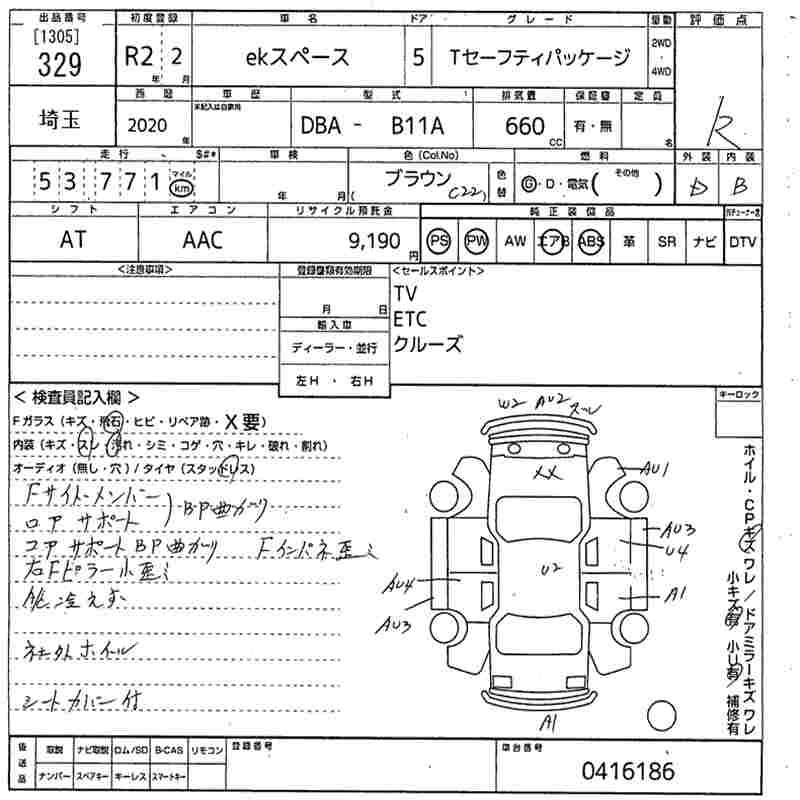 出品番号 初度登録 車名 ドア グレード 駆動 評価点
[1305]
329 R2 2 ekスペース 5 Tセーフティパッケージ 2WD・4WD R
年 月
西暦 車歴 型式 排気量 保証書 定員
未記入は自家用
埼玉 2020 DBA - B11A 660 有・無
年 CC 名
走行 S#* 車検 色(Col.No) 燃料 外装 内装
53771 マイル km 年 月( ブラウン C22) 色替 G・D・電気( その他 ) D B
シフト エアコン リサイクル預託金 純正装備品
AT AAC 9,190円 PS PW AW エアB ABS 革 SR ナビ DTV
<注意事項> 登録書類有効期限 <セールスポイント>
月 日
TV
輸入車
ETC
ディーラー・並行
クルーズ
左H・右H
<検査員記入欄>
キーロック
Fガラス(キズ・飛石・ヒビ・リペア跡・X要)
内装(キズ・スレ・汚れ・シミ・コゲ・穴・キレ・破れ・割れ)
オーディオ(無し・穴)/タイヤ(スタッドレス)
Fサイドメンバー
ロアサポート )BP曲がり
コアサポートBP曲がり Fインパネ歪ミ
右Fピラー小歪ミ
冷えず
社外ホイル
シートカバー付
W2 AU2 スレ
XX
AU1
AU3
U4
U2
AU4
A1
AU3
A1
ホイル・CPキズワレ/ドアミラーキズワレ
小キズ有 小U有/補修有
後送品 取説 ナビ取説 ロム/SD B-CAS リモコン 登録番号 車台番号
ナンバー スペアキー キーレス スマートキー
0416186